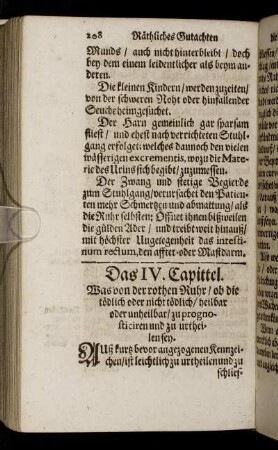 208 Räthliches Gutachten
Munds / auch nicht hinterbleibt / doch
bey dem einem leidentlicher als beym an-
deren.
Die kleinen Kindern / werden zuzeiten /
von der schweren Noht oder hinfallender
Seuche heimgesuchet.
Der Harn gemeinlich gar sparsam
fliest / und ehest nach verrichteten Stuhl-
gang erfolget: welches dannoch den vielen
wässerigen excrementis, wozu die Mate-
rie des Urins sich begibt / zuzumessen.
Der Zwang und stetige Begierde
zum Stuhlgang / verursachet den Patien-
ten mehr Schmertzen und abmattung / als
die Ruhr selbsten; Öffnet ihnen bißweilen
die gülden Ader / und treibt weit hinauß /
mit höchster Ungelegenheit das intesti-
num rectum, den affter- oder Mastdarm.
Das IV. Capittel.
Was von der rothen Ruhr / ob die
tödlich oder nicht tödlich / heilbar
oder unheilbar / zu progno-
sticiren und zu urthei-
len sey.
Auß kurtz bevor angezogenen Kennzei-
chen / ist leichtlich zu urtheilen und zu
schlies-